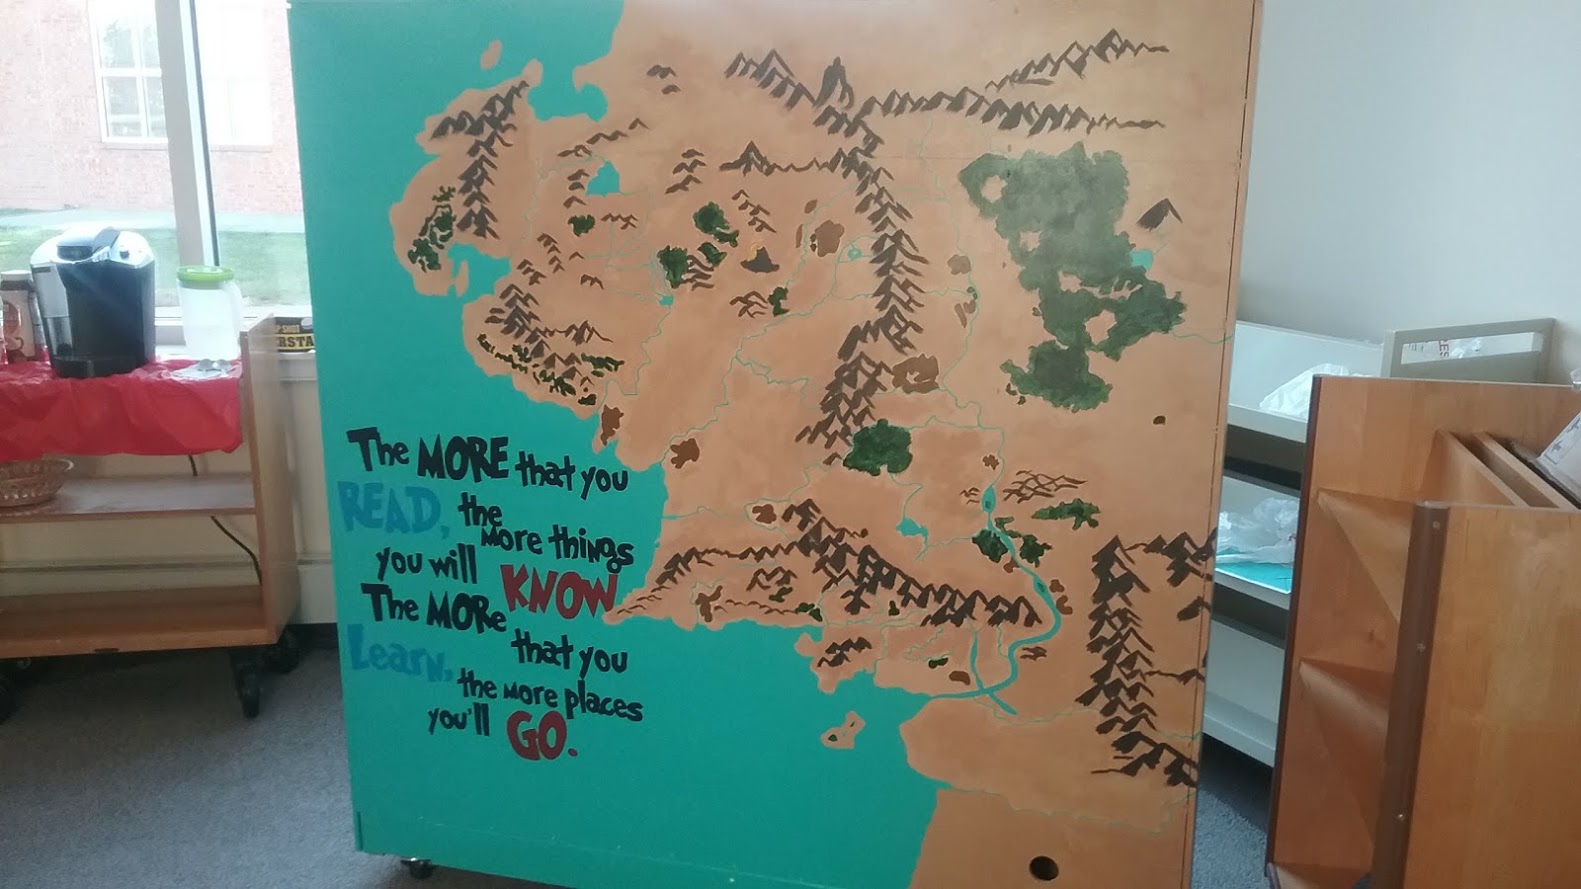 The MORE that you
READ, the
more things
you will KNOW.
The MORe
that you
Learn,
the more places
you'll GO.